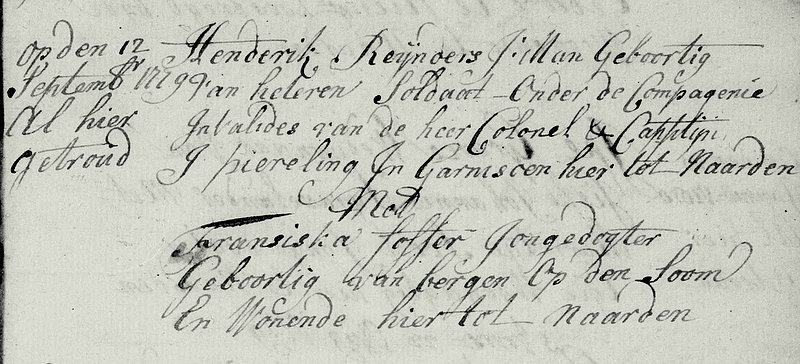 op den 12
Septembr 1779
Al hier
getroud
Henderik Reijnders J:Man Geboortig
van heteren Soldaat Onder de Compagenie
Invalides van de heer Colonel & Cappitijn
J piereling In Garniscen hier tot Naarden
Met
Fransiska foffer Jongedogter
Geboortig van bergen Op den Soom
En Wonende hier tot Naarden